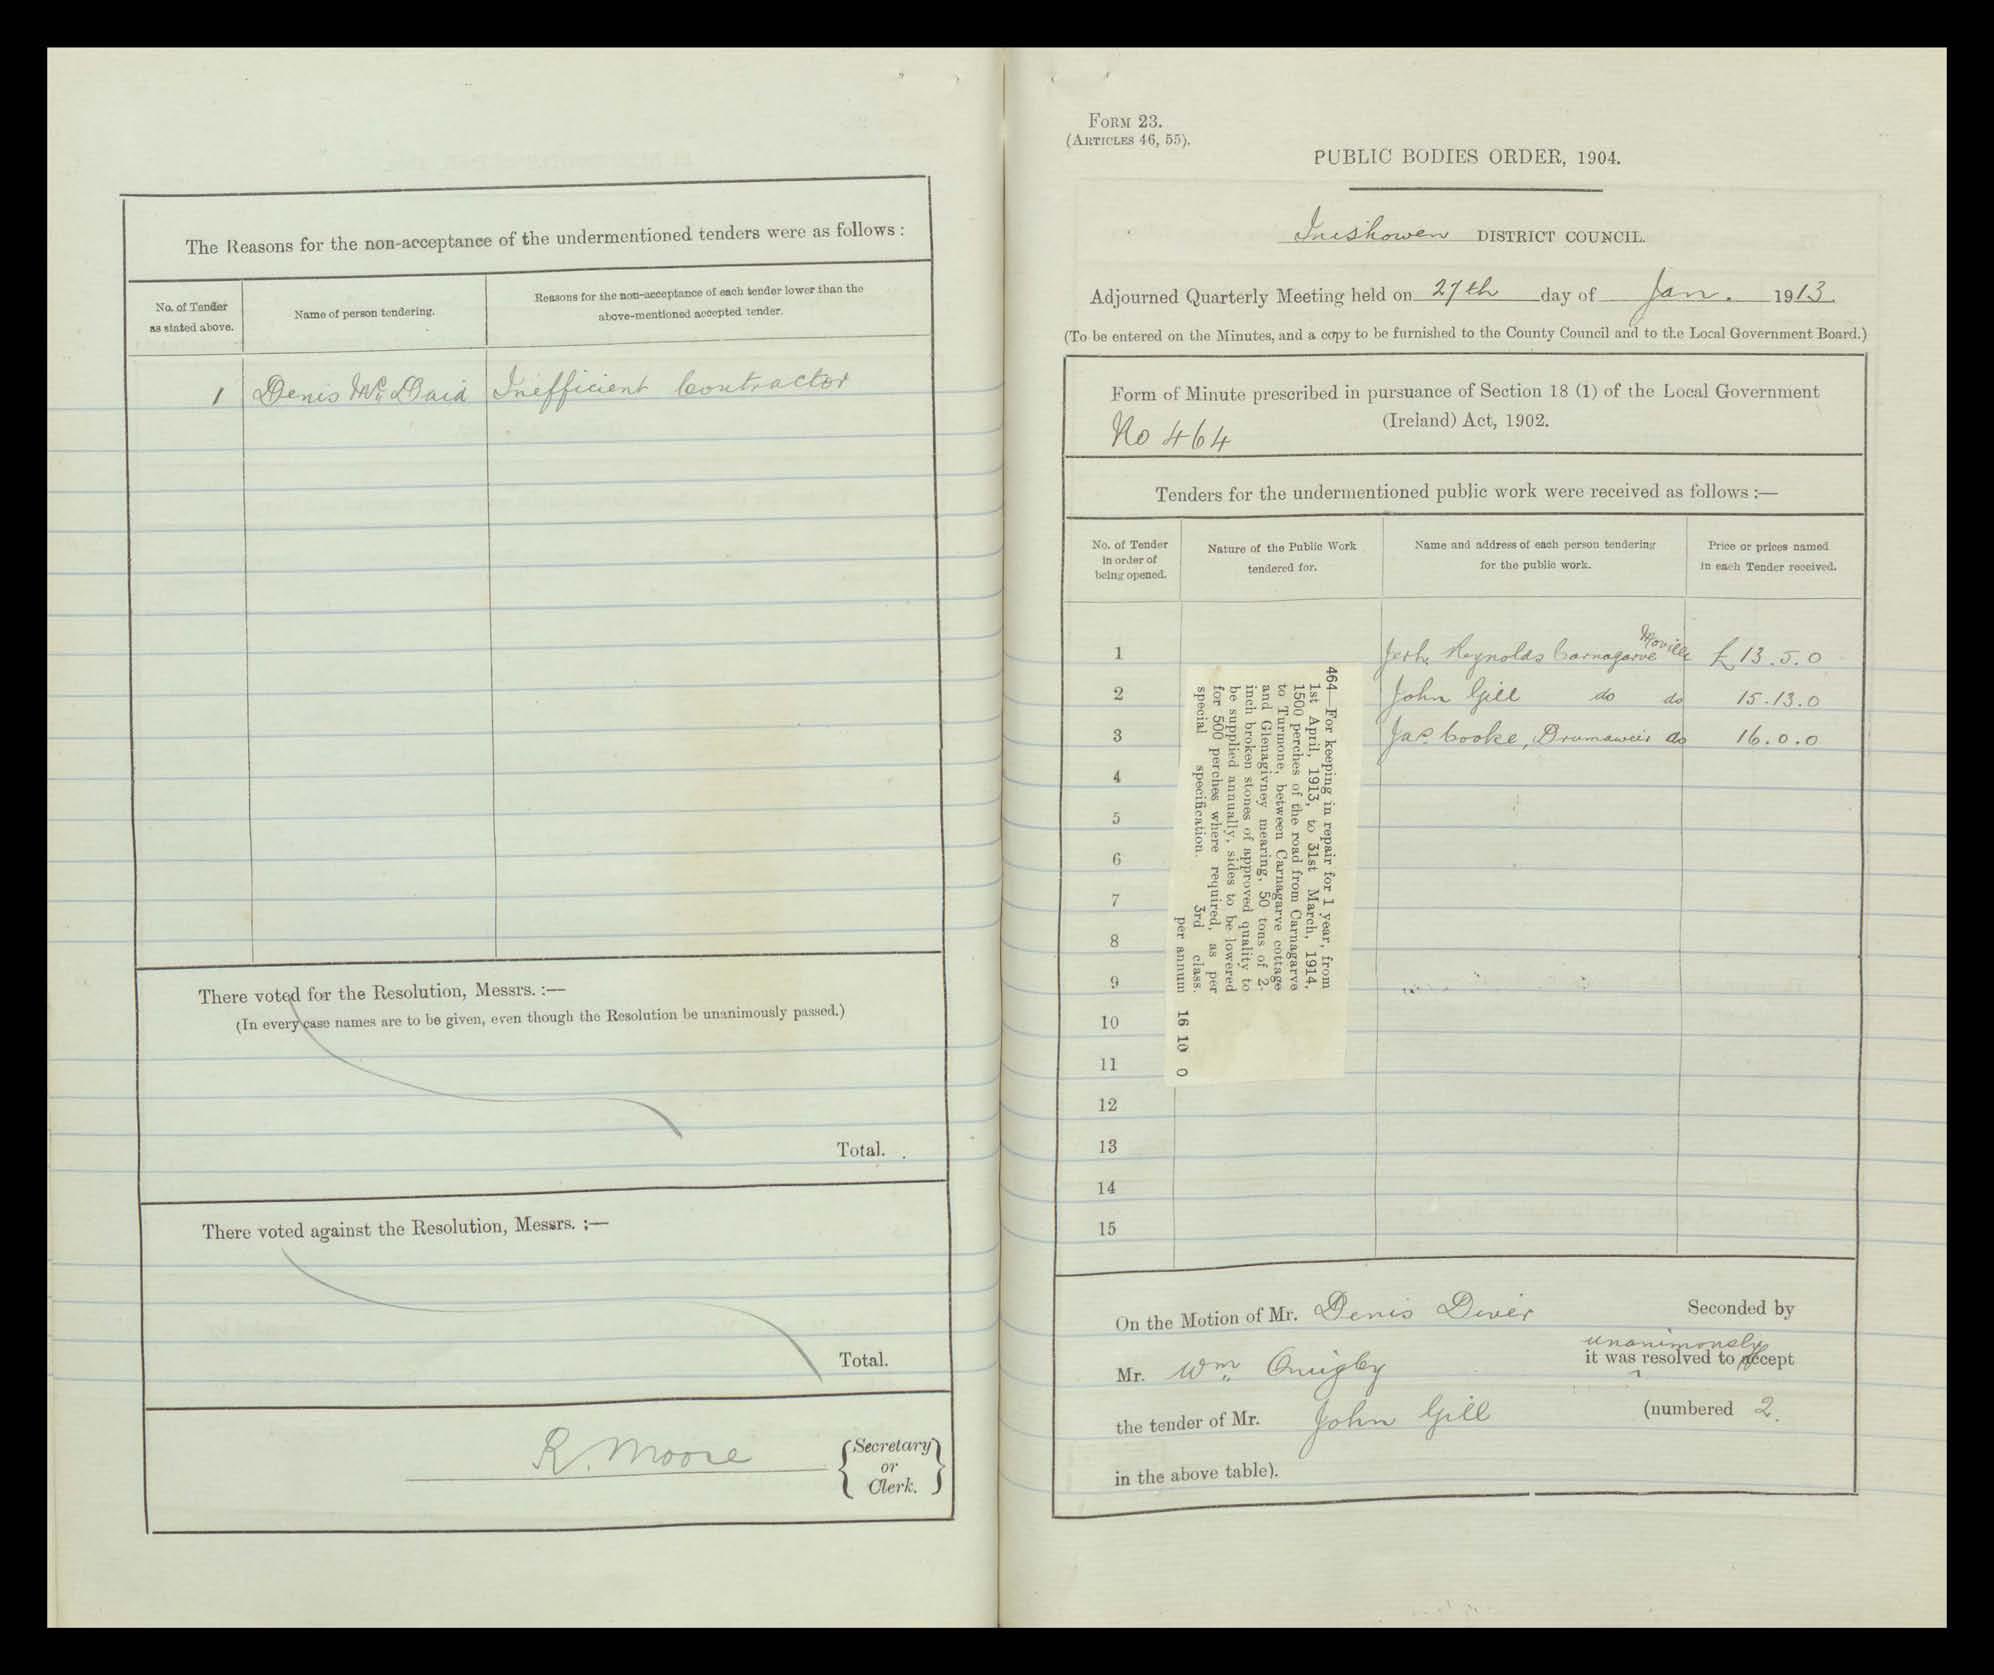 The Reasons for the non-acceptance of the undermentioned tenders were as follows :
No. of Tender
as stated above.
Name of person tendering.
Reasons for the non-acceptance of each tender lower than the
above-mentioned accepted tender.
1 Denis McDaid Inefficient Contractor
There voted for the Resolution, Messrs. :—
(In every case names are to be given, even though the Resolution be unanimously passed.)
Total.
There voted against the Resolution, Messrs. :—
Total.
R. Moore
Secretary
or
Clerk.
FORM 23.
(ARTICLES 46, 55).
PUBLIC BODIES ORDER, 1904.
Inishowen DISTRICT COUNCIL.
Adjourned Quarterly Meeting held on 27th day of Jan. 1913
(To be entered on the Minutes, and a copy to be furnished to the County Council and to the Local Government Board.)
Form of Minute prescribed in pursuance of Section 18 (1) of the Local Government
(Ireland) Act, 1902.
No 464
Tenders for the undermentioned public work were received as follows :—
No. of Tender
in order of
being opened.
Nature of the Public Work
tendered for.
Name and address of each person tendering
for the public work.
Price or prices named
in each Tender received.
Moville
1 Reynolds Carnagarve £13.5.0
2 John Gill do do 15.13.0
3 Jas. Cooke, Drumaweir do 16.0.0
4
5
6
7
8
9
10
11
12
13
14
15
464—For keeping in repair for 1 year, from
1st April, 1913, to 31st March, 1914,
1500 perches of the road from Carnagarve
to Turmone, between Carnagarve cottage
and Glenagivney mearing, 50 tons of 2-
inch broken stones of approved quality to
be supplied annually, sides to be lowered
for 500 perches where required, as per
special specification. 3rd class.
per annum 16 10 0
On the Motion of Mr. Denis Diver Seconded by
unanimously
Mr. Wm Quigley it was resolved to accept
the tender of Mr. John Gill (numbered 2.
in the above table).